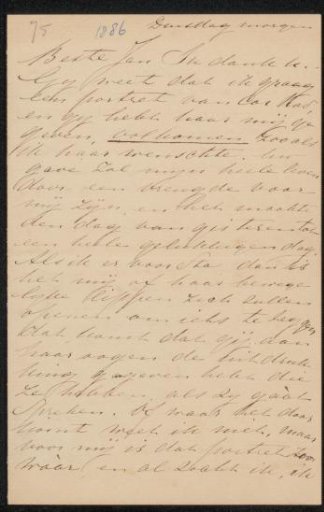 75 1886 Dinsdag morgen
Beste Jan Ik dank U.
Gij weet dat ik graag
een portret van
en gij hebt haar mij ge
geven, volkomen zooals
ik haar wenschte. Uw
gave zal mijn heele leven
door een vreugde voor
mij zijn, en het maakte
den dag van gisteren tot
een heele gelukkigen dag.
Als ik er voor sta dan is
het mij of haar bewege
lijke lippen zich zullen
openen om iets te zeggen
Dat komt dat gij aan
haar oogen de uitdruk
king gegeven hebt die
ze hebben als zij gaat
spreken. Of waar het door
komt weet ik niet, maar
voor mij is dat portret zoo
waar en al zocht ik, ik